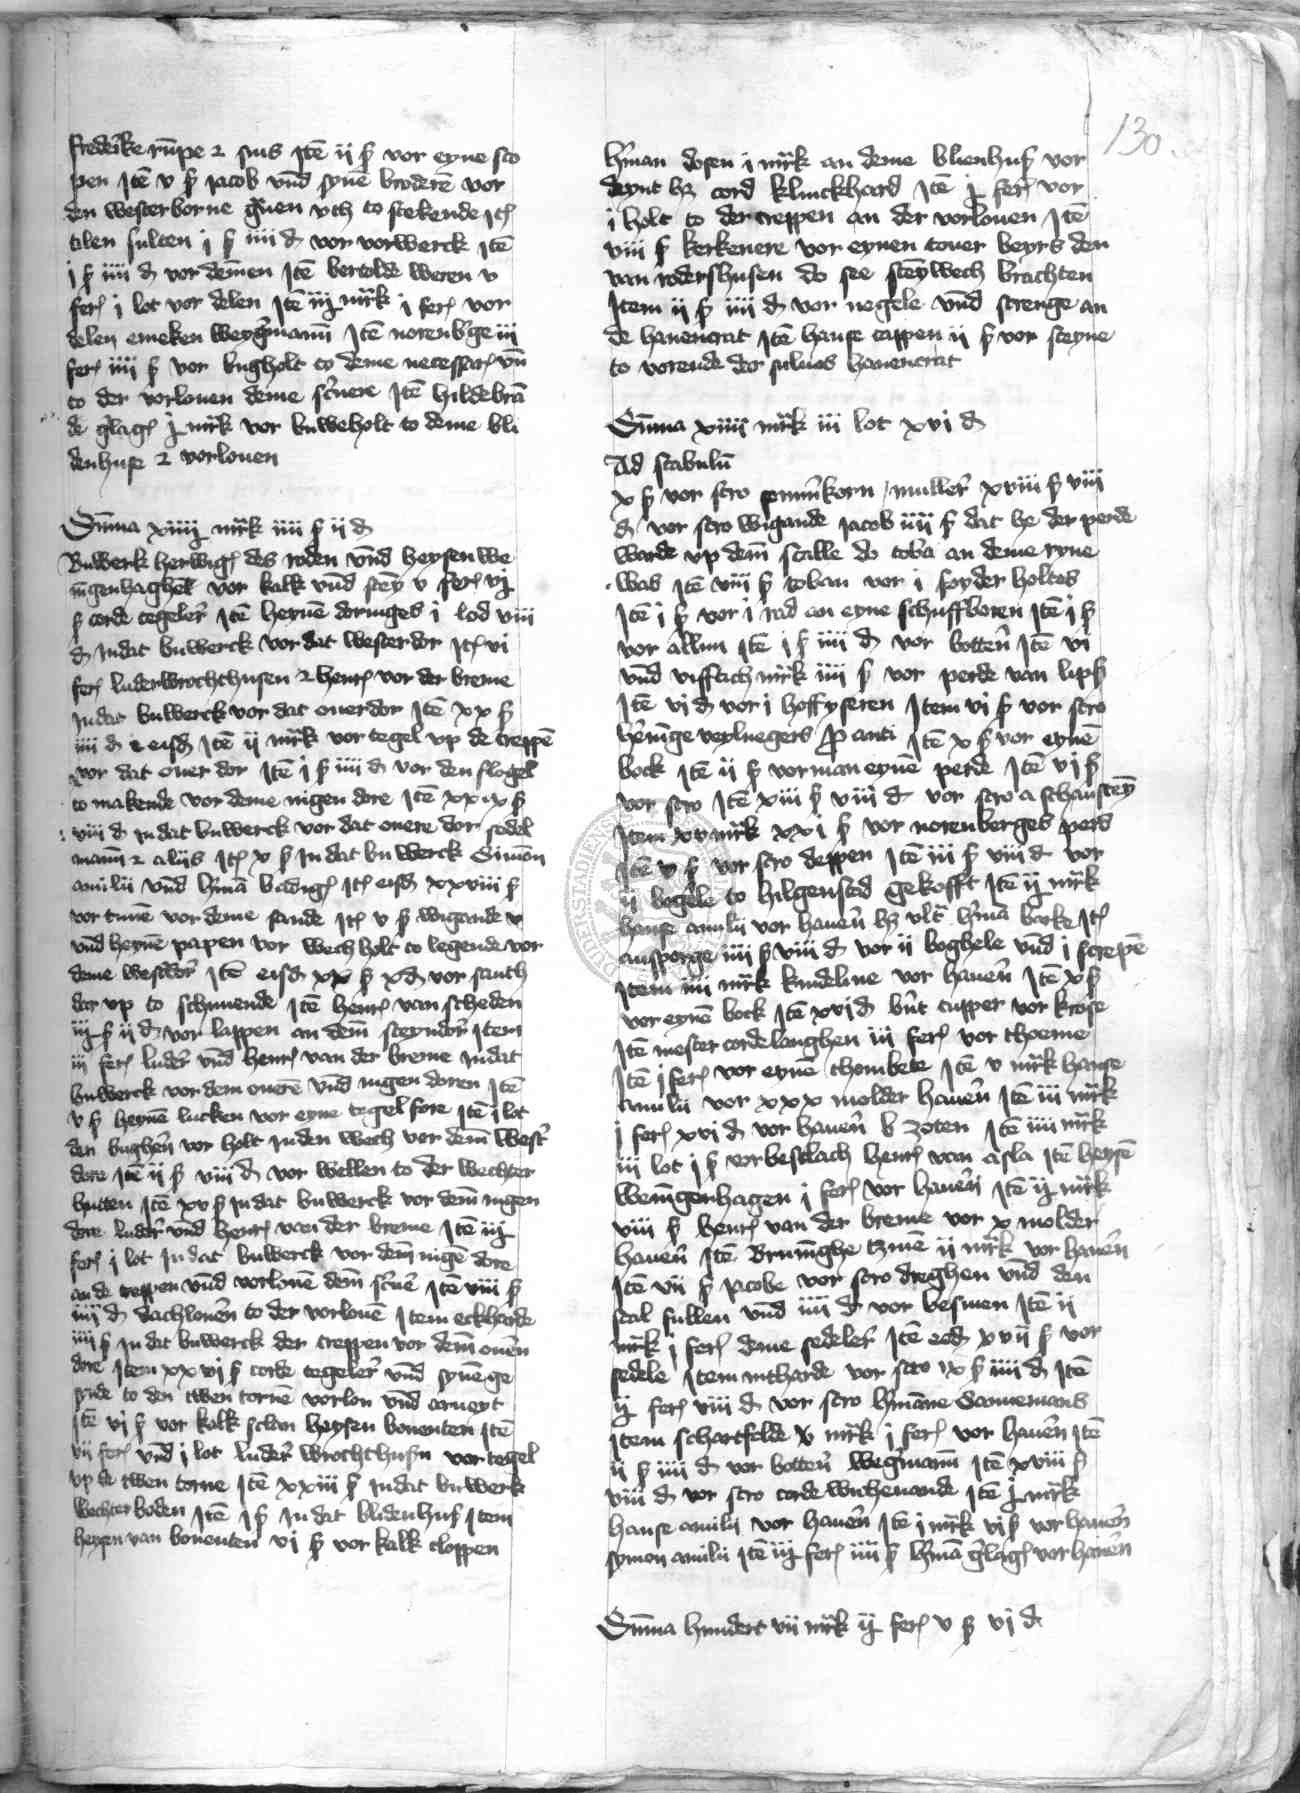 130
frederike rūpe ⁊ suis Itē ij ß vor eyne sto
pen Itē v ß jacob vnd̄ synē broderē vor
den westerborne grͮuen vth to stekende Itꝭ
tilen sulten j ß iiii ₰ vor vorwerck Itē
j ß iiii ₰ vor demen Itē bertolde weren v
ferꝭ i lot vor delen Itē iij mr̄k i ferꝭ vor
delen emeken weygmann̄ Itē norenb'ge iii
ferꝭ iiii ß vor bugholt to deme necessarꝭ vn̄
to der vorlouen deme scͥuere Itē hildebrā
de g̍lagꝭ j mr̄k vor buweholt to deme bli
denhuse ⁊ vorlouen
Sum̄a xiiij mr̄k iiii ß ij ₰
Buwerk herwigꝭ des roden vnd̄ heysen we
nigenhaghē vor kalk vnd̄ stey v ferꝭ vj
ß corde tegeler̍ Itē heynē doringes i lod viii
₰ In dat buwerck vor dat westerdor Itꝭ vi
ferꝭ luderwrochthusen ⁊ henrꝭ vor der breme
In dat buwerck vor dat ouerdor Itē xx ß
iiii ₰ eisd̄ Itē ij mr̄k vor tegel vp de treppē
vor dat ouer dor Itē j ß iiii ₰ vor den slogel
to makende vor deme nigen dore Itē xxix ß
viii ₰ In dat buwerck vor dat ouere dor sedel
mann̄ ⁊ aliis Itꝭ x ß In dat bu werck Simon
amilii vnd̄ hͥmā badigꝭ Itꝭ eisd̄ xxviii ß
vor tunē vor deme sande Itꝭ v ß wigande
vnd̄ heynē papen vor wech holt to legende vor
deme westdor̍ Itē eisd̄ xx ß x₰ vor santh
dar vp to schuuende Itē henrꝭ van scheden
iij ß ij ₰ vor lappen an dem̄ steyndor̍ Item
iii ferꝭ luder̍ vnd̄ henrꝭ van der breme In dat
buwerck vor dem ouerē vnd̄ nigen doren Itē
v ß heynē lucken vor eyne tegel fore Itē i lot
den bughen̄ vor holt In den wech vor dem̄ west̍
dore Itē ij ß viii ₰ vor wellen to der wechter
hutten Itē xv ß In dat buwerck vor dem̄ nigen
dore luder̍ vnd̄ henrꝭ van der breme Itē iij
ferꝭ i lot In dat buwerck vor dem̄ nigē dore
an de treppen vnd̄ vorlouē dem̄ scͥuer̍ Itē viii ß
iiii ₰ dachlouen̄ to der vorlouē Item eckharde
iiii ß In dat buwerck der treppen vor dem̄ ouen̄
dore Item xxvi ß corde tegeler̍ vnd̄ synē ge
synde to den twen tornē vorlon vnd̄ arueyt
Itē vj ß vor kalk sclan heysen bouenten Itē
vii ferꝭ vnd̄ i lot luder̍ wrochthusn̄ vor tegel
vp de twen torne Itē xxiii ß In dat buwerk
wechter boden Itē j ß In dat blidenhus̍ Item
heysen van bouenten vj ß vor kalk cloppen
hͥman dosen i mr̄k an deme blienhus̍ vor
deynt hꝫ cord klinckhard Itē j ferꝭ vor
i holt to der treppen an der vorlouen Itē
viii ß kerkenere vor eynen touer beyrs den
van rodershusen do see steywech brachten
Item ij ß iiii ₰ vor negele vnd̄ strenge an
de hauencrat Itē hanse tappen ij ß vor steyne
to vorende der suluos hauencrat
Sum̄a xiiii mr̄k iii lot xvi ₰
Ad stabulū
x ß vor stro somm̄korn muller̍ xviii ß viii
₰ vor stro wigande jacob iiii ß dat he der perde
warde vp dem̄ stalle do toba an deme ryne
was Itē viii ß toban vor i foyder holtes
Itē i ß vor i rad an eyne schuffkoren Itē j ß
vor allun Itē j ß iiii ₰ vor botten̄ Itē vi
vnd̄ vifftich mr̄k iiii ß vor perde van lips̍
Itē vi ₰ vor i hoffyseren Item vi ß vor stro
hēn̄ige veyluegers ꝑanti Itē x ß vor eynē
bock Itē ij ß vorman eynē perde Itē vj ß
vor stro Itē xiii ß viii ₰ vor stro a schansteȳ
Item xv mr̄k xxi ß vor norenberges perd
Itē v ß vor stro deppen Itē iii ß viii ₰ vor
ij bogele to hilgensted gekofft Itē ij mr̄k
hanse amilii vor hauen̄ hꝫ vlt̄ hͥmā borke Itꝭ
ansporge iiii ß viii ₰ vor ij boghele vnd̄ i strepē
Item iiii mr̄k kundeline vor hauen̄ Itē x ß
vor eynē bock Itē xvj ₰ bn̄t cupper vor krose
Itē mester corde langhen iii ferꝭ vor thoeme
Itē j ferꝭ vor eynē thombete Itē v mr̄k hanse
amilii vor xxx molder hauen̄ Itē iii mr̄k
j ferꝭ xvi ₰ vor hauen̄ b zoten Itē iiii mr̄k
iii lot j ß vor beslach henrꝭ van asla Itē heysē
wenīgenhagen j ferꝭ vor hauen̄ Itē ij mr̄k
viii ß henrꝭ van der breme vor x molder
hauen̄ Itē Brunīghe tzinē ij mr̄k vor hauen̄
Itē vii ß jacobe vor stro dreghen vnd̄ den
stal fullen vnd̄ iiii ₰ vor besmen Itē ij
mr̄k j ferꝭ deme sedeler̍ Itē eod̄ xvij ß vor
sedele Item mtharde vor stro ix ß iiii ₰ Itē
ij ferꝭ viii ₰ vor stro hͥmāne Sannemans
Item schartfelde x mr̄k j ferꝭ vor hauen̄ Itē
ij ß iiii ₰ vor botten̄ weg̍mann̄ Itē xviii ß
viii ₰ vor stro corde wichenande Itē j mr̄k
hanse amilii vor hauen̄ Itē j mr̄k vj ß vor hauen̄
symon amilii Itē iij ferꝭ iiii ß hͥmā g̍lagꝭ vor hauen̄
Sum̄a hundert vii mr̄k ij ferꝭ v ß vj ₰